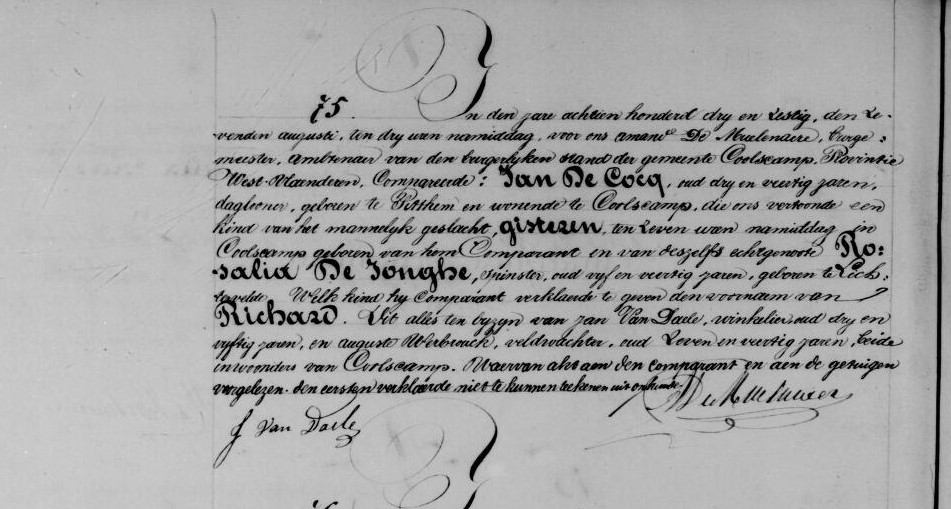 75.
In den jare achtien honderd dry en zestig, den Ze-
venden augusti, ten dry uren namiddag, voor ons amand De Muelenaere, burge-
meester, ambtenaer van den burgerlyken stand der gemeente Coolscamp, Provintie
West-Vlaenderen, Compareerde: Jan De Cocq, oud dry en veertig jaren,
daglooner, geboren te Pitthem en wonende te Coolscamp, die ons vertoonde een
kind van het mannelyk geslacht, gisteren, ten zeven uren namiddag in
Coolscamp geboren van hem Comparant en van deszelfs echtgenoote Ro-
salia De Jonghe, spinster, oud vyf en veertig jaren, geboren te Lich-
tervelde. Welk kind hy Comparant verklaerde te geven den voornaem van
Richard. Dit alles ten byzyn van jan Van Daele, winkelier oud dry en
vyftig jaren, en auguste Werbrouck, veldwachter, oud zeven en veertig jaren, beide
inwoonders van Coolscamp. Waervan akt aen den comparant en aen de getuigen
voorgelezen. den eersten verklaerde niet te kunnen teekenen uit onkunde.
De Muelenaere
J Van Daele